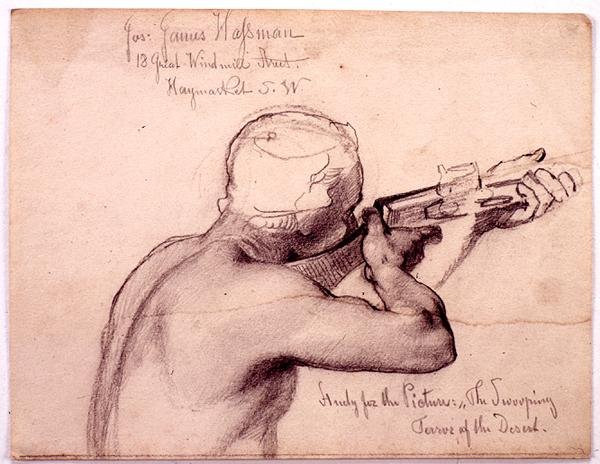 Jos: James Haſsman
13 Great Windmill Street.
Haymarket S. W
Study for the Picture: „The Swooping
Terror, of the Desert.